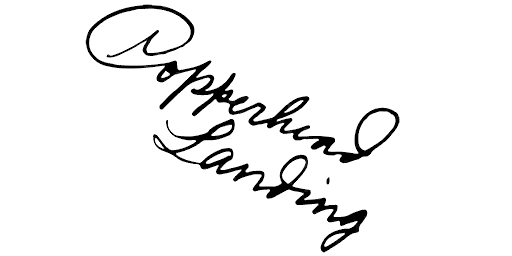 Copperhead
Landing